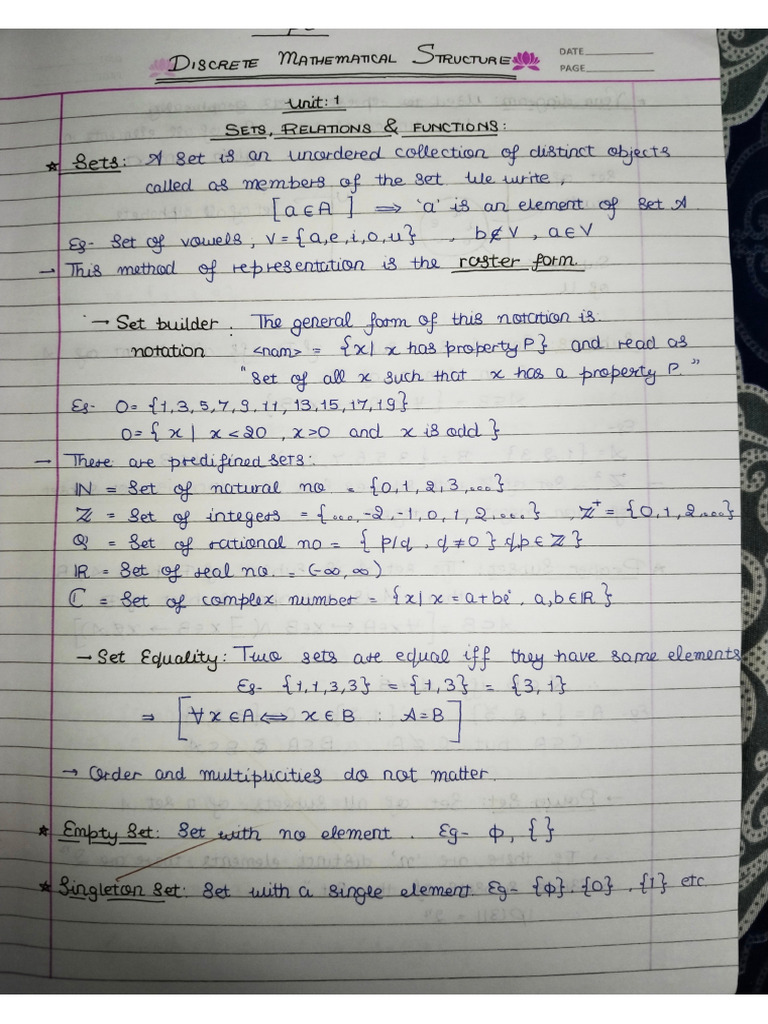 DISCRETE MATHEMATICAL STRUCTURE
DATE
PAGE
Unit: 1
SETS, RELATIONS & FUNCTIONS:
* Sets: A set is an unordered collection of distinct objects
called as members of the set. We write,
[a ∈ A] ⟹ 'a' is an element of set A
Eg- Set of vowels, V = {a, e, i, o, u} , b ∉ V , a ∈ V
→ This method of representation is the roster form.
→ Set builder : The general form of this notation is.
notation <nam> = {x | x has property P} and read as
"Set of all x such that x has a property P."
Eg- O = {1, 3, 5, 7, 9, 11, 13, 15, 17, 19}
O = { x | x < 20 , x > 0 and x is odd }
→ There are predifined sets:
ℕ = Set of natural no = {0, 1, 2, 3, ....}
ℤ = Set of integers = {...., -2, -1, 0, 1, 2, ....} , ℤ⁺ = {0, 1, 2, ....}
Q = Set of rational no = { p/q , q ≠ 0 } q, p ∈ ℤ }
ℝ = Set of real no. = (-∞, ∞)
ℂ = Set of complex number = {x | x = a + bi , a, b ∈ ℝ }
→ Set Equality: Two sets are equal iff they have same elements
Eg- {1, 1, 3, 3} = {1, 3} = {3, 1}
⇒ [∀ x ∈ A ⟺ x ∈ B : A = B]
→ Order and multiplicities do not matter.
* Empty Set: Set with no element . Eg- ϕ, { }
* Singleton Set: Set with a single element. Eg- {ϕ}, {0} , {1} etc.